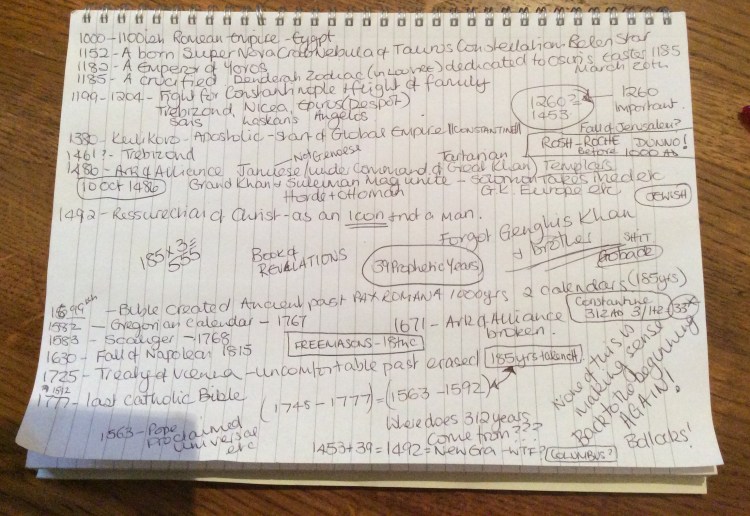 1000-1100 Romean Empire - Egypt
1152 - A born Super Nova Crab Nebula of Taurus Constellation - Star
1182 - A Emperor of Yoros
1185 - A Crucified Denderah Zodiac (in Louvre) dedicated to osiris Easter 1185
March 20th
1199-1204 - Fight for Constantinople + flight of family
Trebizond, Nicea, Epiros (Despot)
Laskaris Angelos
1260 =
1453
1260
Important.
Fall of Jerusalem?
1380 - Kulikovo - Apostolic - Start of Global Empire ||CONSTANTINE||
ROSH-ROCHE DUNNO!
Before 1000 AD
1461? - Trebizond
Not Genoese
Tartarian
1486 - Ark of Alliance Janviese/under Command of Great Khan) Templars
10 Oct 1486
Grand Khan & Suleiman Mag unite - Solomon takes Med etc
Horde + Ottoman
G.K. Europe etc
JEWISH
1492 - Ressurection of Christ - as an Icon + not a man.
Forgot Genghis Khan
& Brother
SHIT
185 x 3 =
555
Book of
REVELATIONS
39 Prophetic Years
- Bible created Ancient past PAX ROMANA 1000yrs 2 calendars (185yrs)
Constantine
312 AD
33
1582 - Gregorian Calendar - 1767
1671 - Ark of Alliance
broken.
1583 - Scaliger - 1768
FREEMASONS - 18thC
1630 - Fall of Napoleon 1815
1725 - Treaty of Vienna - uncomfortable past erased
185yrs taken off
1592
1777 - last Catholic Bible
(1745 - 1777) = (1563 - 1592)
1563 - Pope
Proclaimed
Universal
etc
Where does 312 years
come from???
1453 + 39 = 1492 = New Era - WTF?
COLUMBUS?
None of this is
making sense
Back to the beginning
AGAIN!
Bollocks!